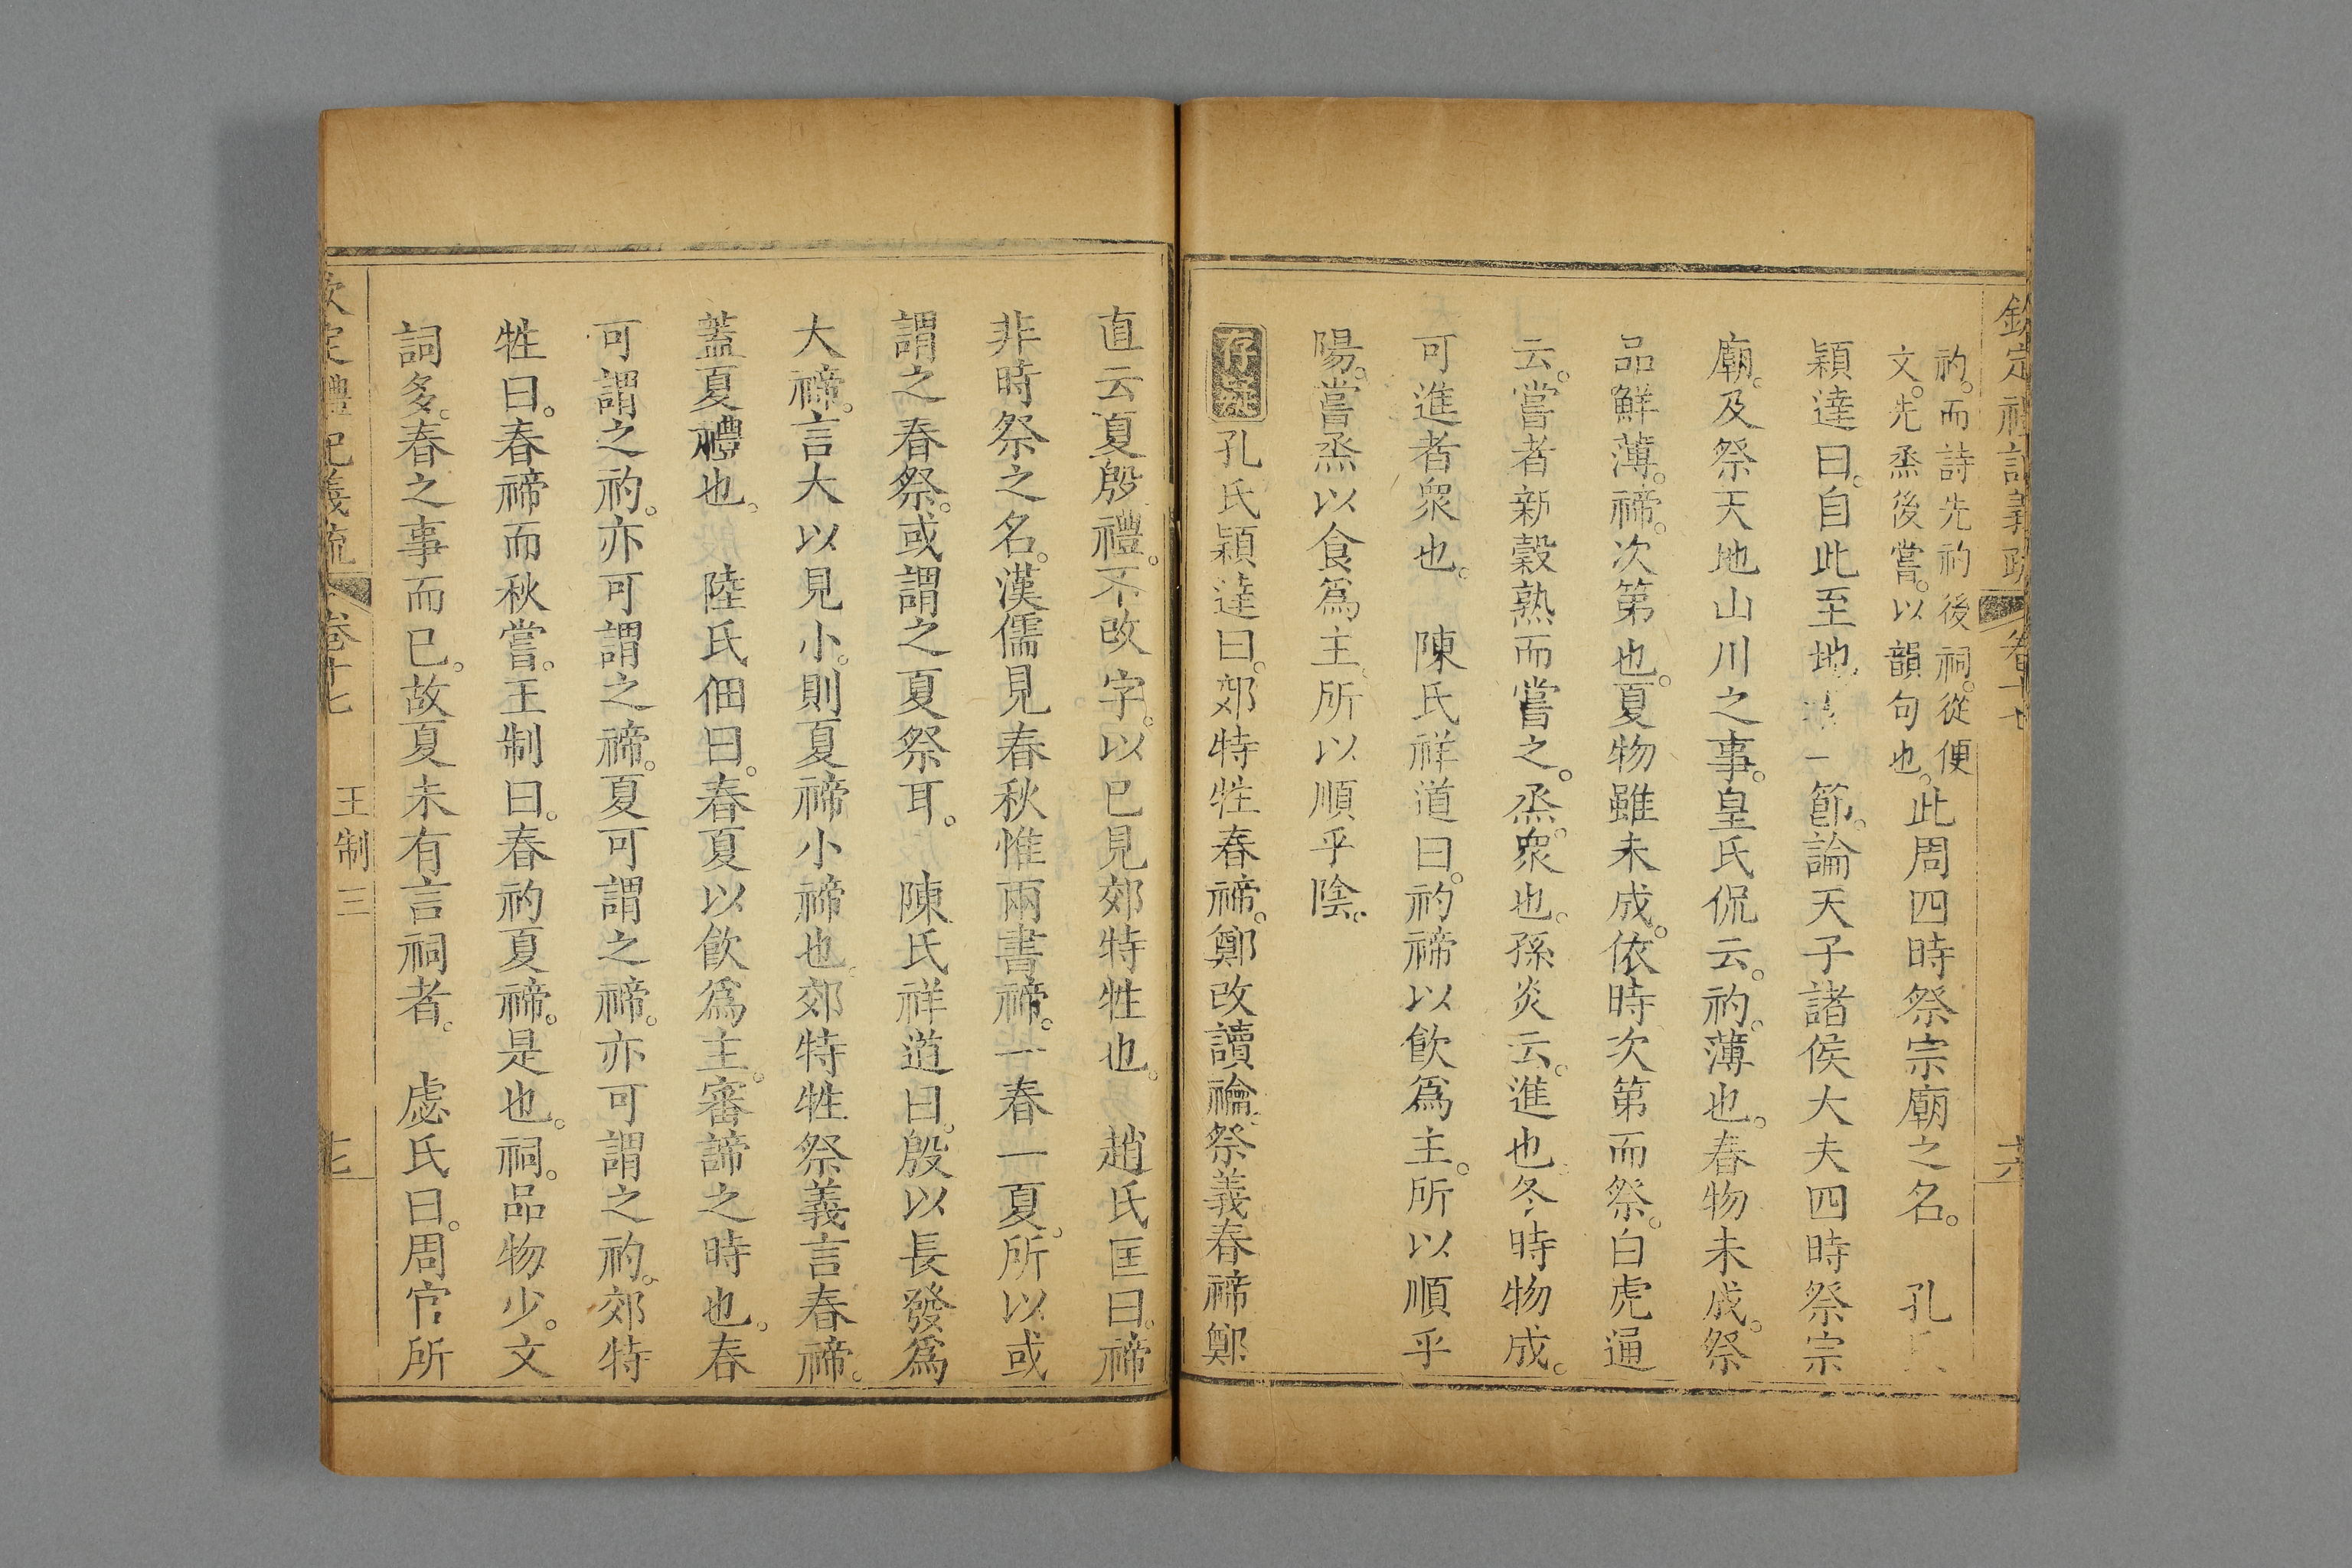 欽定禮記義疏 卷十七 十六
礿。而詩先礿後祠。從便
文。先烝後嘗。以韻句也。
此周四時祭宗廟之名。 孔氏
穎達曰。自此至地 一節。論天子諸侯大夫四時祭宗
廟。及祭天地山川之事。皇氏侃云。礿。薄也。春物未成。祭
品鮮薄。禘。次第也。夏物雖未成。依時次第而祭。白虎通
云。嘗者新穀熟而嘗之。烝。衆也。孫炎云。進也。冬時物成。
可進者衆也。 陳氏祥道曰。礿禘以飮爲主。所以順乎
陽。嘗烝以食爲主。所以順乎陰。
存疑 孔氏穎達曰。郊特牲春禘。鄭改讀禴。祭義春禘鄭
直云夏殷禮。不改字。以已見郊特牲也。 趙氏匡曰。禘
非時祭之名。漢儒見春秋惟兩書禘。一春一夏。所以或
謂之春祭。或謂之夏祭耳。 陳氏祥道曰。殷以長發爲
大禘。言大以見小。則夏禘小禘也。郊特牲祭義言春禘。
蓋夏禮也。 陸氏佃曰。春夏以飮爲主。審諦之時也。春
可謂之礿。亦可謂之禘。夏可謂之禘。亦可謂之礿。郊特
牲曰。春禘而秋嘗。王制曰。春礿夏禘。是也。祠。品物少。文
詞多。春之事而已。故夏未有言祠者。 慮氏曰。周官所
欽定禮記義疏 卷十七 王制三 十七